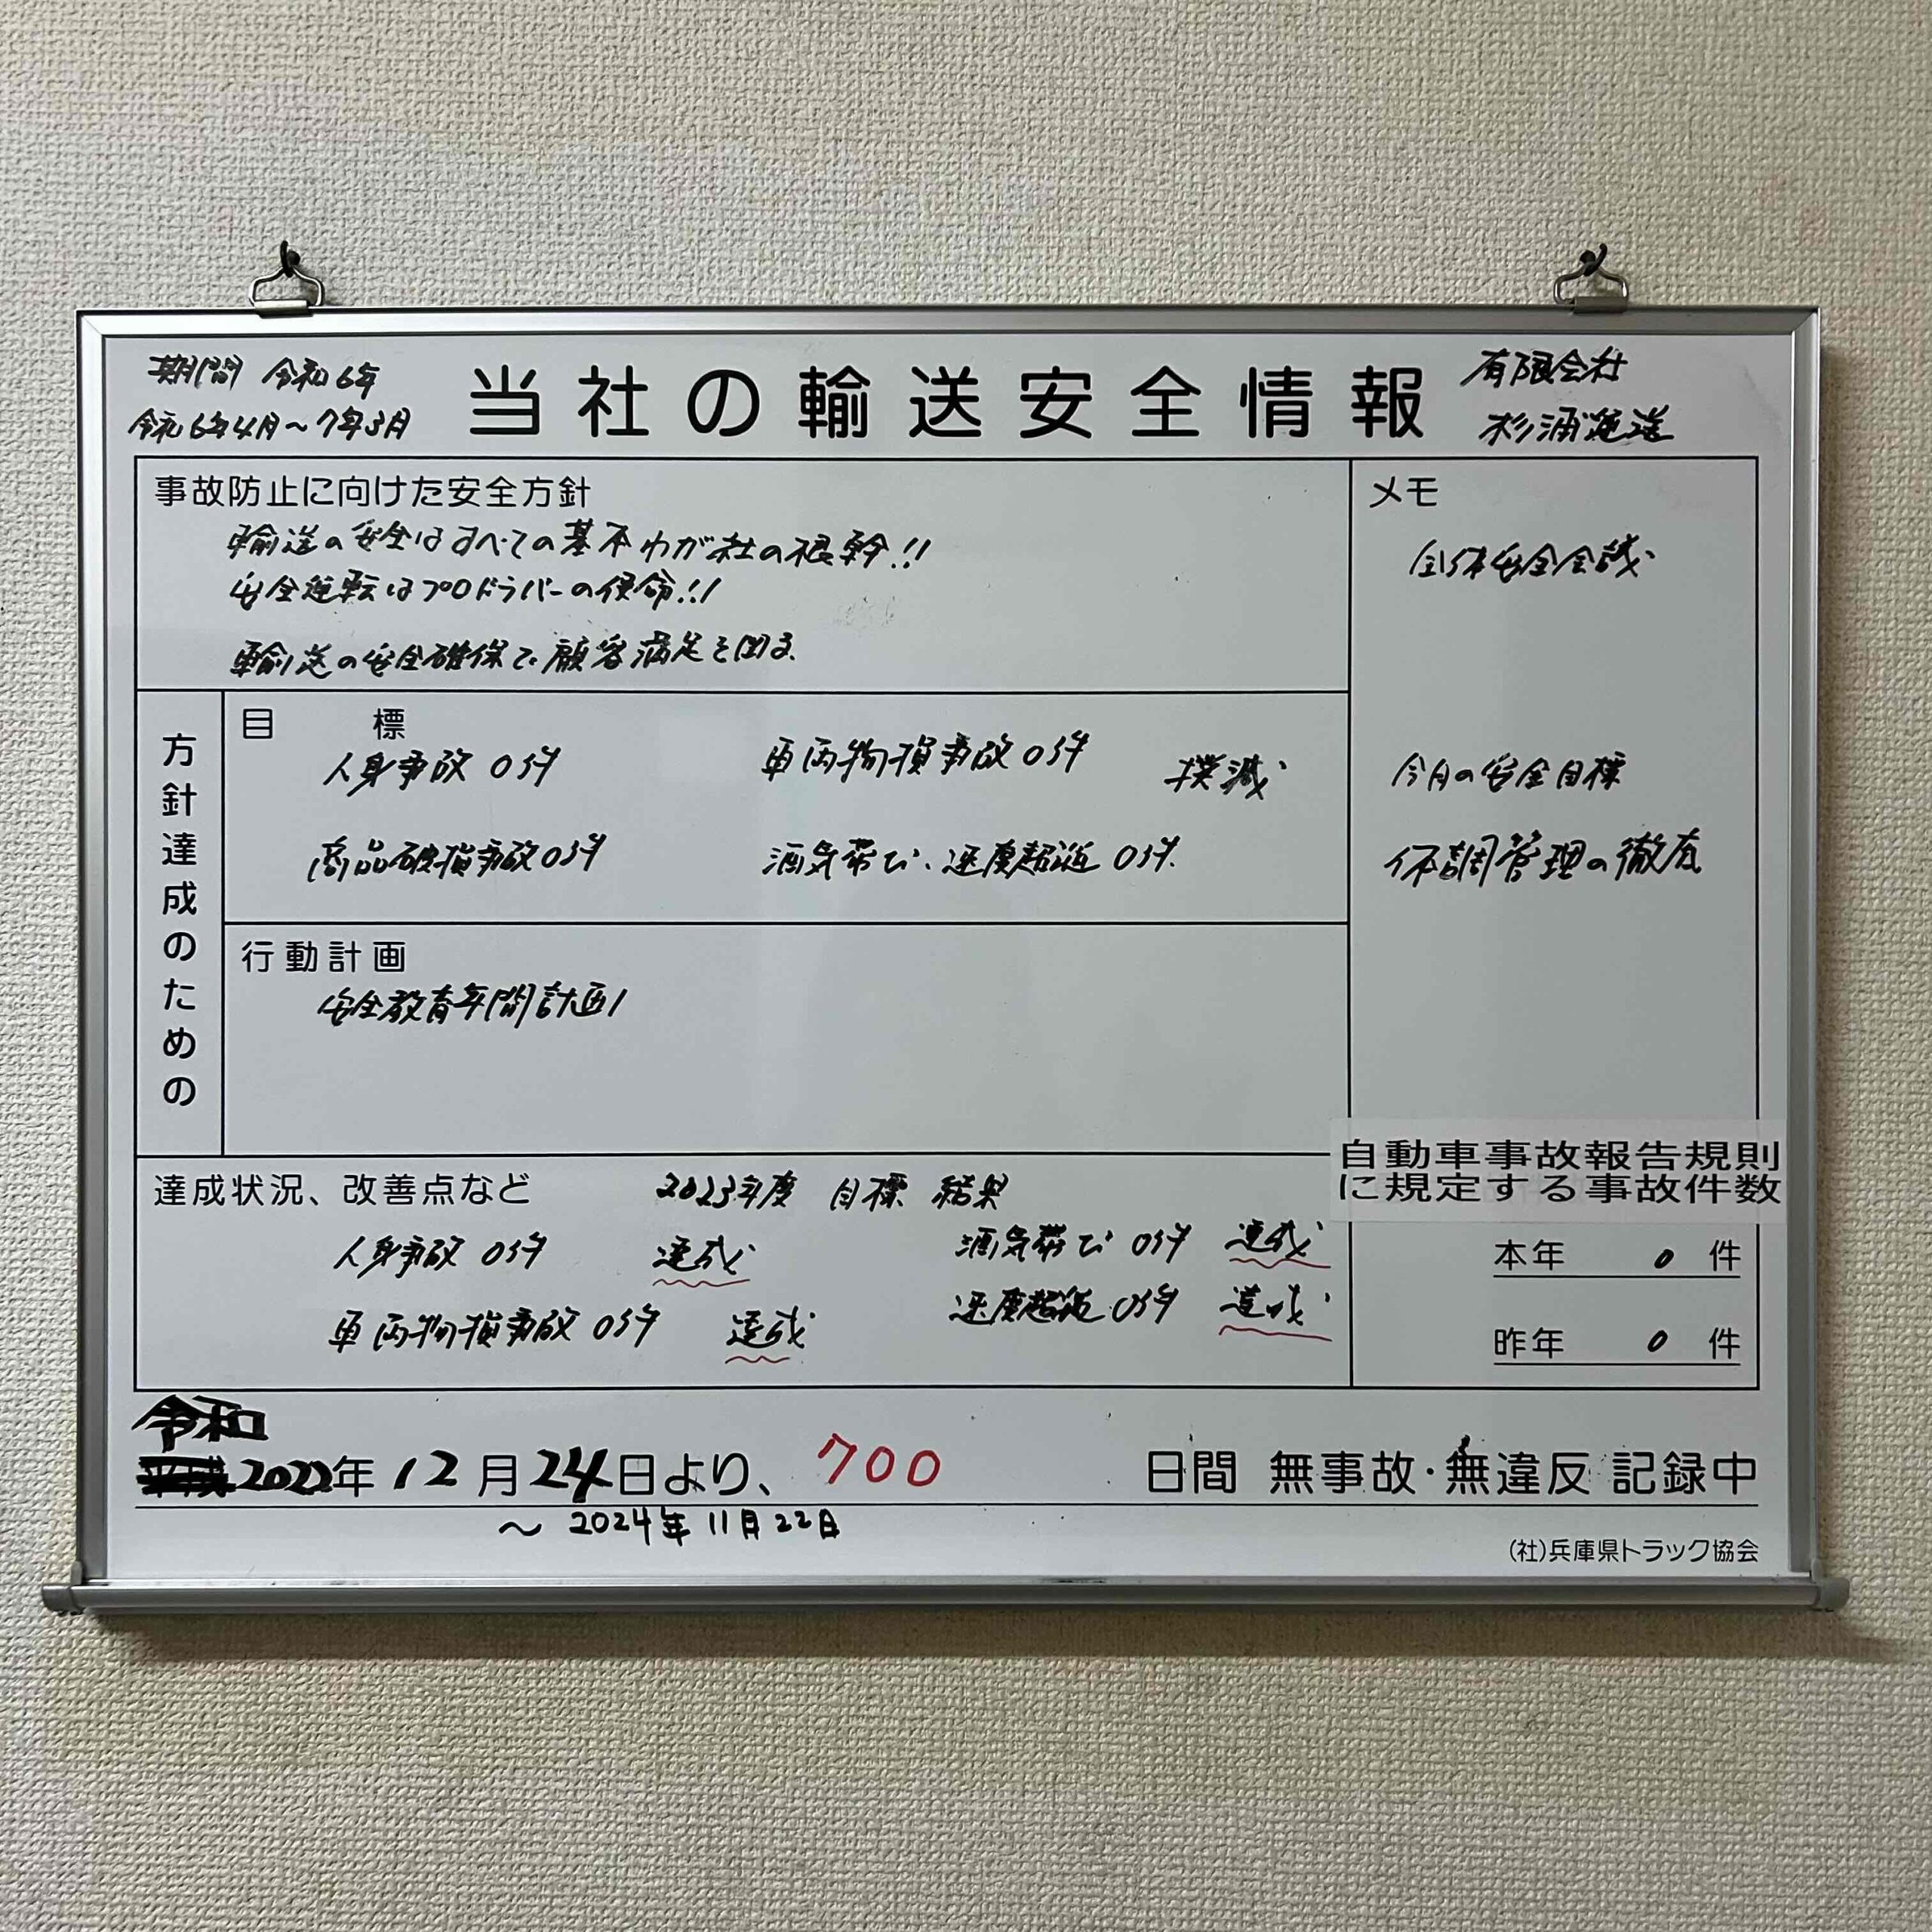 期間 令和6年
令和6年4月～7年3月
当社の輸送安全情報
有限会社
杉浦運送
事故防止に向けた安全方針
輸送の安全はすべての基本わが社の根幹!!
安全運転はプロドライバーの使命!!
輸送の安全確保で顧客満足を図る
メモ
全体安全会議
今月の安全目標
体調管理の徹底
方針達成のための
目標
人身事故 0件
車両物損事故 0件
撲滅
商品破損事故 0件
酒気帯び、速度超過 0件
行動計画
安全教育年間計画
達成状況、改善点など
2023年度 目標 結果
人身事故 0件 達成
酒気帯び 0件 達成
車両物損事故 0件 達成
速度超過 0件 達成
自動車事故報告規則
に規定する事故件数
本年 0 件
昨年 0 件
令和
2022年 12月24日より、700日間 無事故・無違反 記録中
～ 2024年11月22日
(社)兵庫県トラック協会